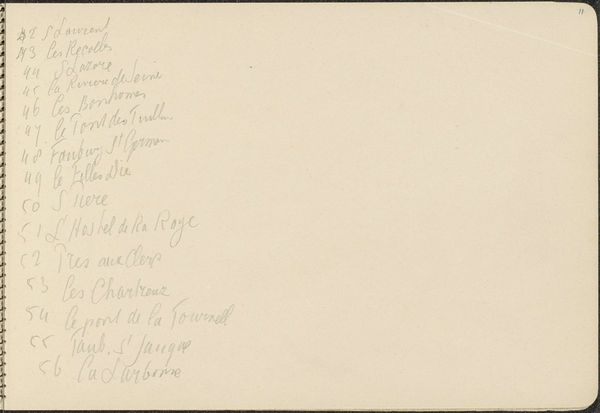 11
42 S Laurent
43 Les Recolles
44 S Lazare
45 La Riviere de Seine
46 Les Bonhomes
47 Le Pont des Tuill
48 Faubur St German
49 Le Filles Die
50 S
51 L'Hostel de La Roye
52 Pres aux Clers
53 Les Chartreux
54 Le pont de la Tournell
55 Faub. St Jacque
56 La Sarbonne